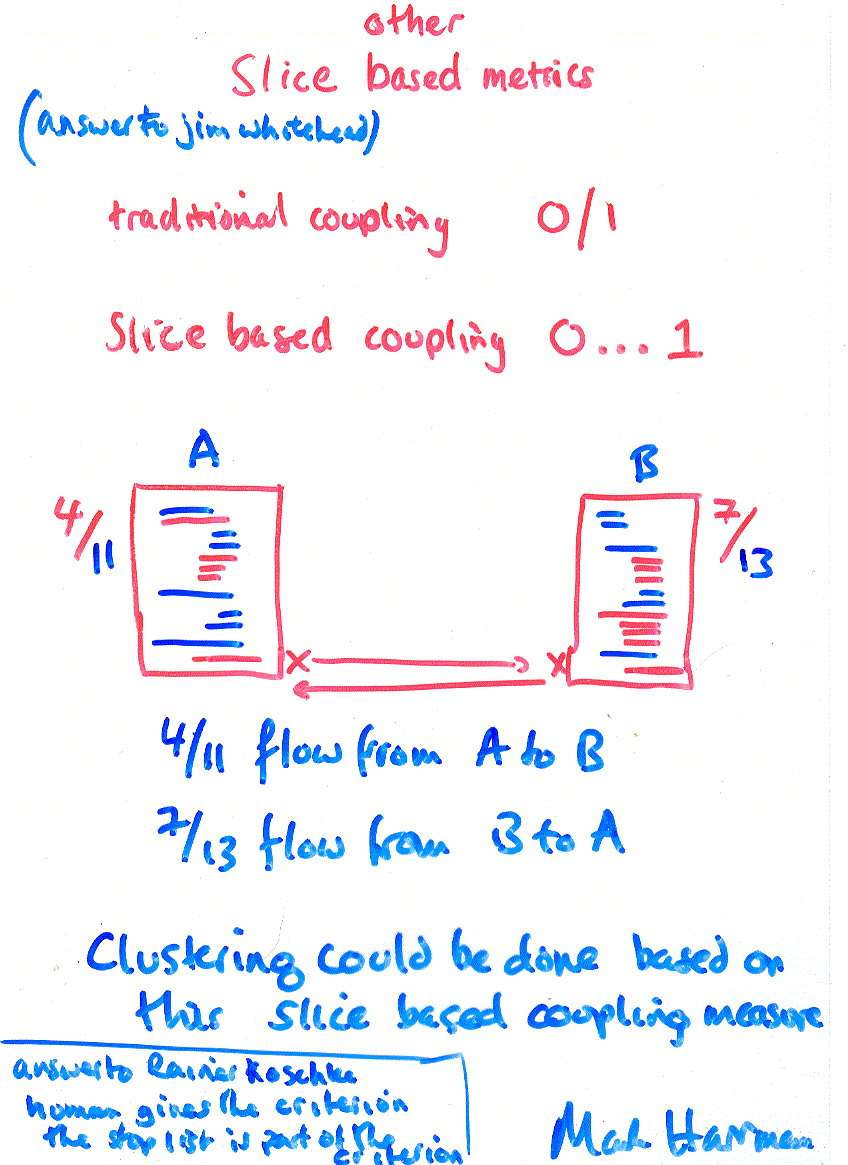 other
Slice based metrics
(answer to jim whitehead)
traditional coupling 0/1
Slice based coupling 0...1
A
B
4/11
7/13
x
x
4/11 flow from A to B
7/13 flow from B to A
Clustering could be done based on
this slice based coupling measure
answer to Rainer Koschke
human gives the criterion
the stop list is part of the
criterion
Mark Harman